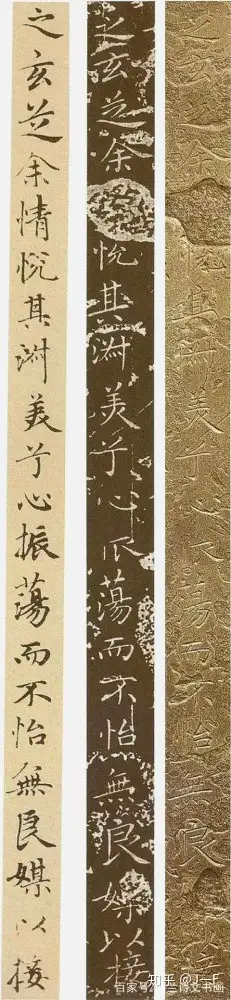 之玄芝余情悦其淑美兮心振蕩而不怡無良媒以接
之玄芝余悦其淑美兮心蕩而不怡無良媒以接
之玄芝余悦其淑美兮心蕩而不怡無良媒以接
知乎 @J—F
百家号